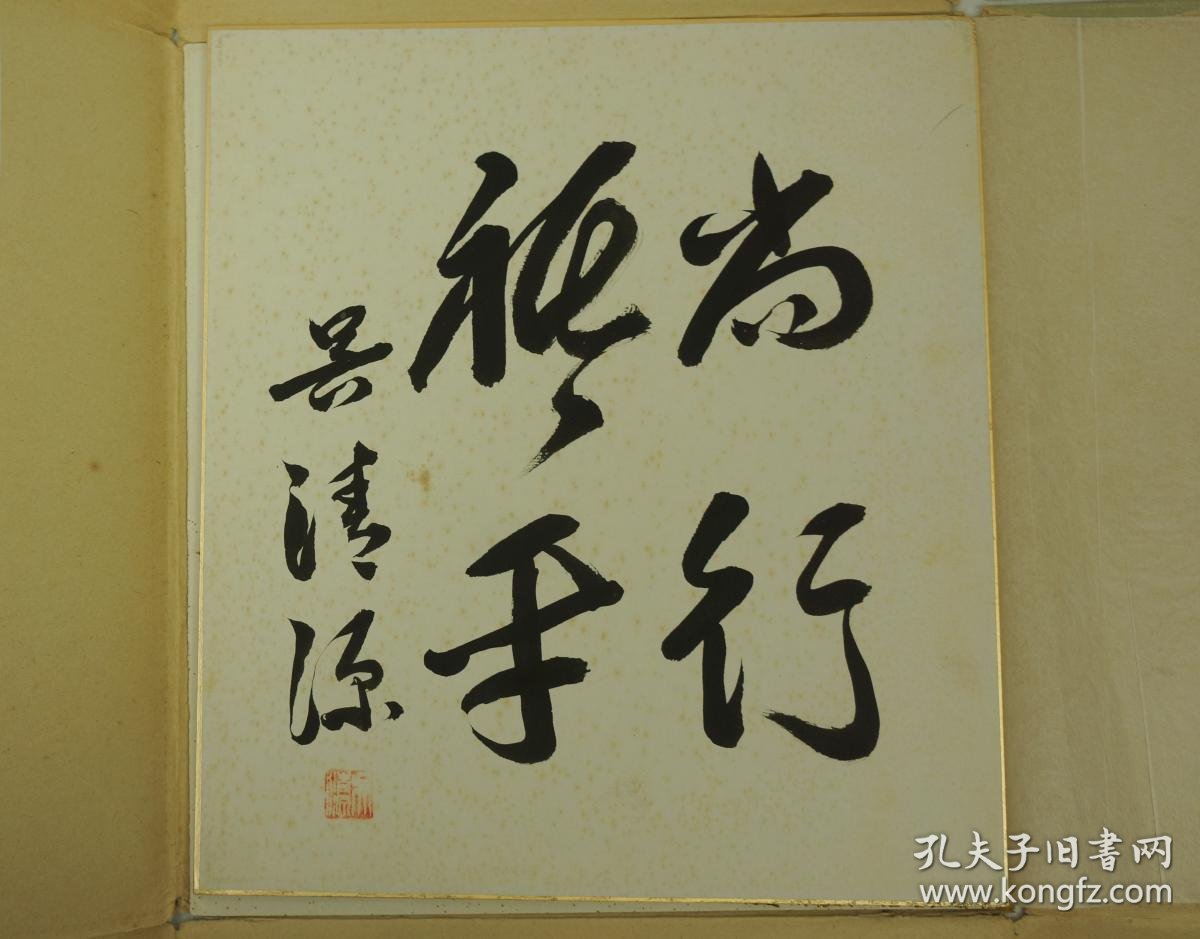 尚行
祗平
吴清源
孔夫子旧書网
www.kongfz.com